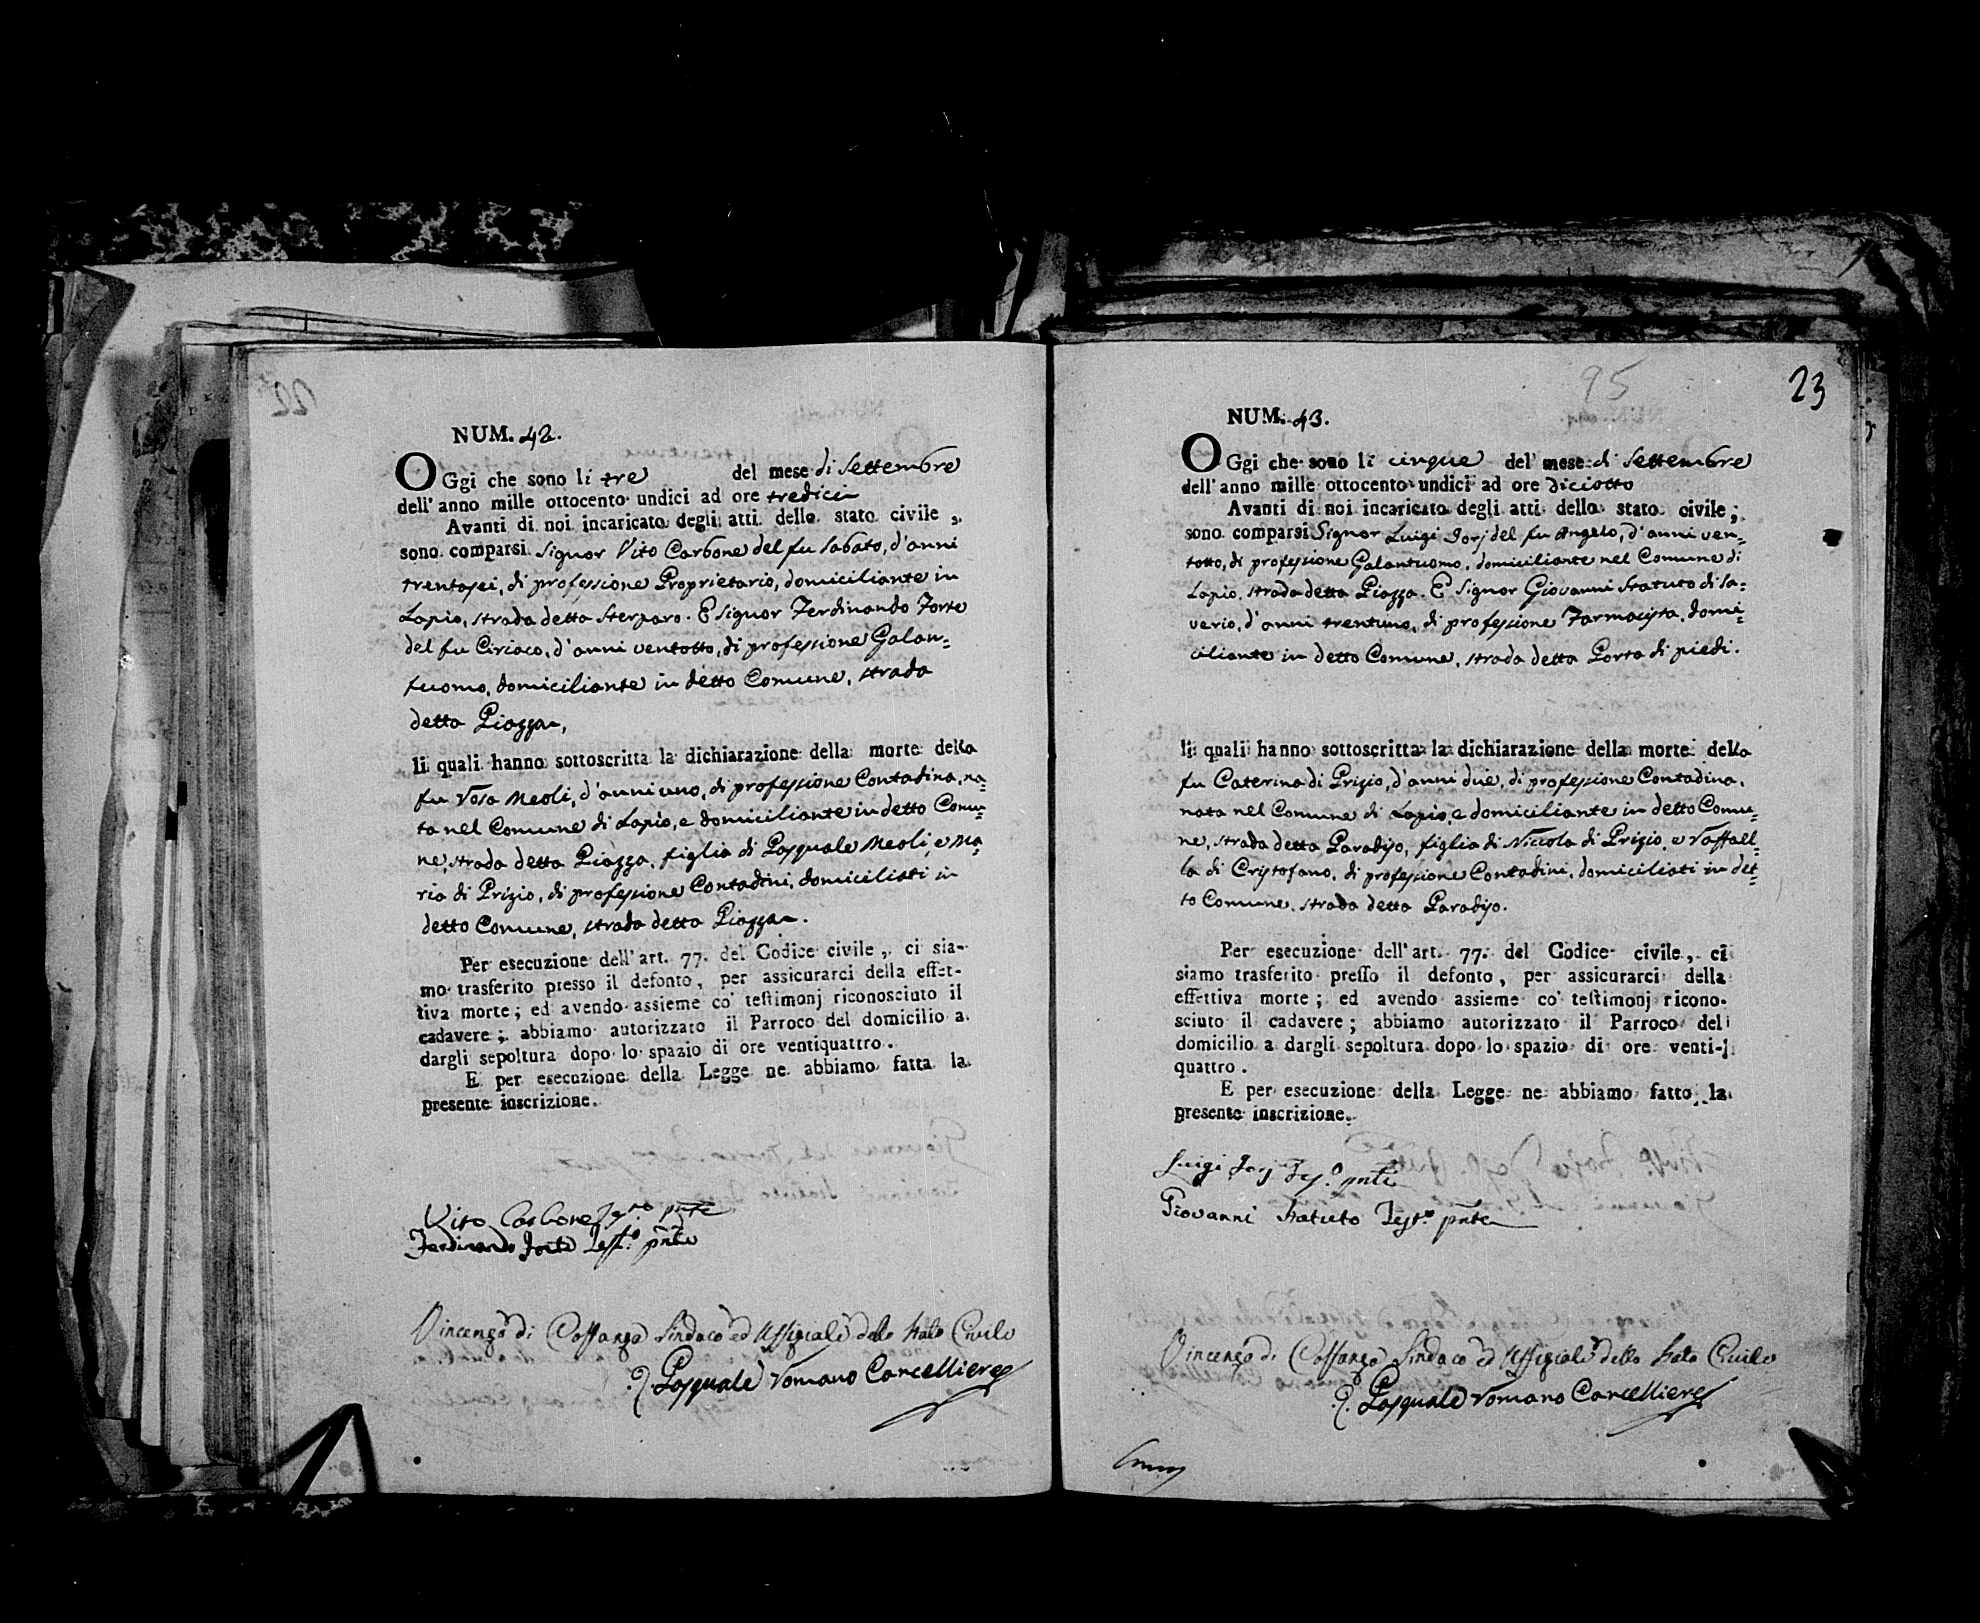 NUM. 42.
OGgi che sono li tre del mese di Settembre
dell' anno mille ottocento undici ad ore tredici
Avanti di noi incaricato degli atti dello stato civile,
sono comparsi Signor Vito Carbone del fu Sabato, d'anni
trentasei, di professione Proprietario, domiciliante in
Lapio, strada detta Sterparo. E Signor Ferdinando Forte
del fu Ciriaco, d'anni ventotto, di professione Galan=
tuomo, domiciliante in detto Comune, strada
detta Piazza,
li quali hanno sottoscritta la dichiarazione della morte della
fu Rosa Meoli, d'anni uno, di professione Contadina, na=
ta nel Comune di Lapio, e domiciliante in detto Comu=
ne, strada detta Piazza, figlia di Pasquale Meoli, e Ma=
ria di Prizio, di professione Contadini, domiciliati in
detto Comune, strada detta Piazza.
Per esecuzione dell' art. 77. del Codice civile, ci sia-
mo trasferito presso il defonto, per assicurarci della effet-
tiva morte; ed avendo assieme co' testimonj riconosciuto il
cadavere; abbiamo autorizzato il Parroco del domicilio a
dargli sepoltura dopo lo spazio di ore ventiquattro.
E per esecuzione della Legge ne abbiamo fatta la
presente inscrizione.
Vito Carbone pnte
Ferdinando Forte Test.o pnte
Vincenzo di Costanzo Sindaco ed Uffiziale dello Stato Civile
Pasquale Romano Cancelliere
95
23
NUM. 43.
OGgi che sono li cinque del mese di Settembre
dell' anno mille ottocento undici ad ore diciotto
Avanti di noi incaricato degli atti dello stato civile;
sono comparsi Signor Luigi Jorj del fu Angelo, d'anni ven=
totto, di professione Galantuomo, domiciliante nel Comune di
Lapio, strada detta Piazza. E Signor Giovanni Statuto di Sa=
verio, d'anni trentuno, di professione Farmacista, domi=
ciliante in detto Comune, strada detta Porta di piedi.
li quali hanno sottoscritta la dichiarazione della morte della
fu Caterina di Prizio, d'anni due, di professione Contadina,
nata nel Comune di Lapio, e domiciliante in detto Comu=
ne, strada detta Paradiso, figlia di Niccola di Prizio, e Raffael=
la di Cristofano, di professione Contadini, domiciliati in det=
to Comune, strada detta Paradiso.
Per esecuzione dell' art. 77. del Codice civile, ci
siamo trasferito presso il defonto, per assicurarci della
effettiva morte; ed avendo assieme co' testimonj ricono-
sciuto il cadavere; abbiamo autorizzato il Parroco del
domicilio a dargli sepoltura dopo lo spazio di ore venti-
quattro.
E per esecuzione della Legge ne abbiamo fatto la
presente inscrizione.
Luigi Jorj Tes.o pnte
Giovanni Statuto Test.o pnte
Vincenzo di Costanzo Sindaco ed Uffiziale dello Stato Civile
Pasquale Romano Cancelliere